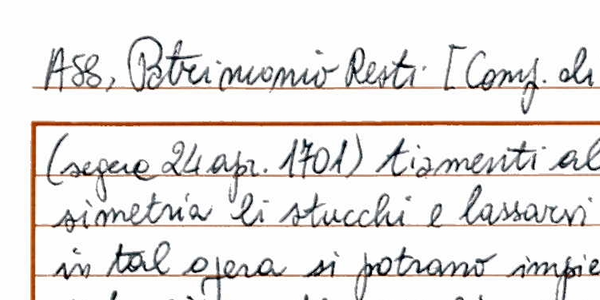 ASS, Patrimonio Resti [Conf. di
(segue 24 apr. 1701) tiamenti al
simetria li stucchi e lassarvi
in tal opera si potrano impie